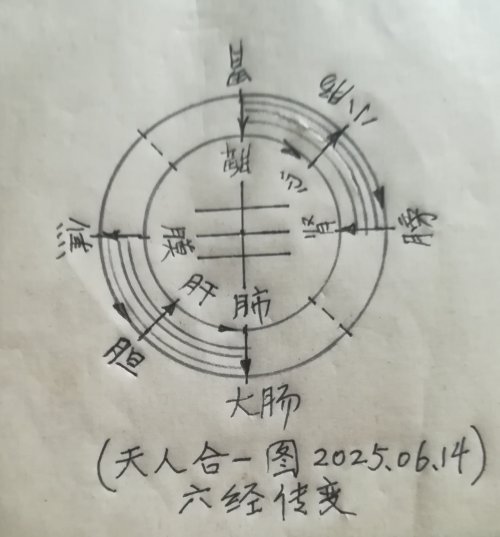 胃
小肠
脾
心
焦
膜
肾
膀
肝
肺
胆
大肠
(天人合一图 2025.06.14)
六经传变